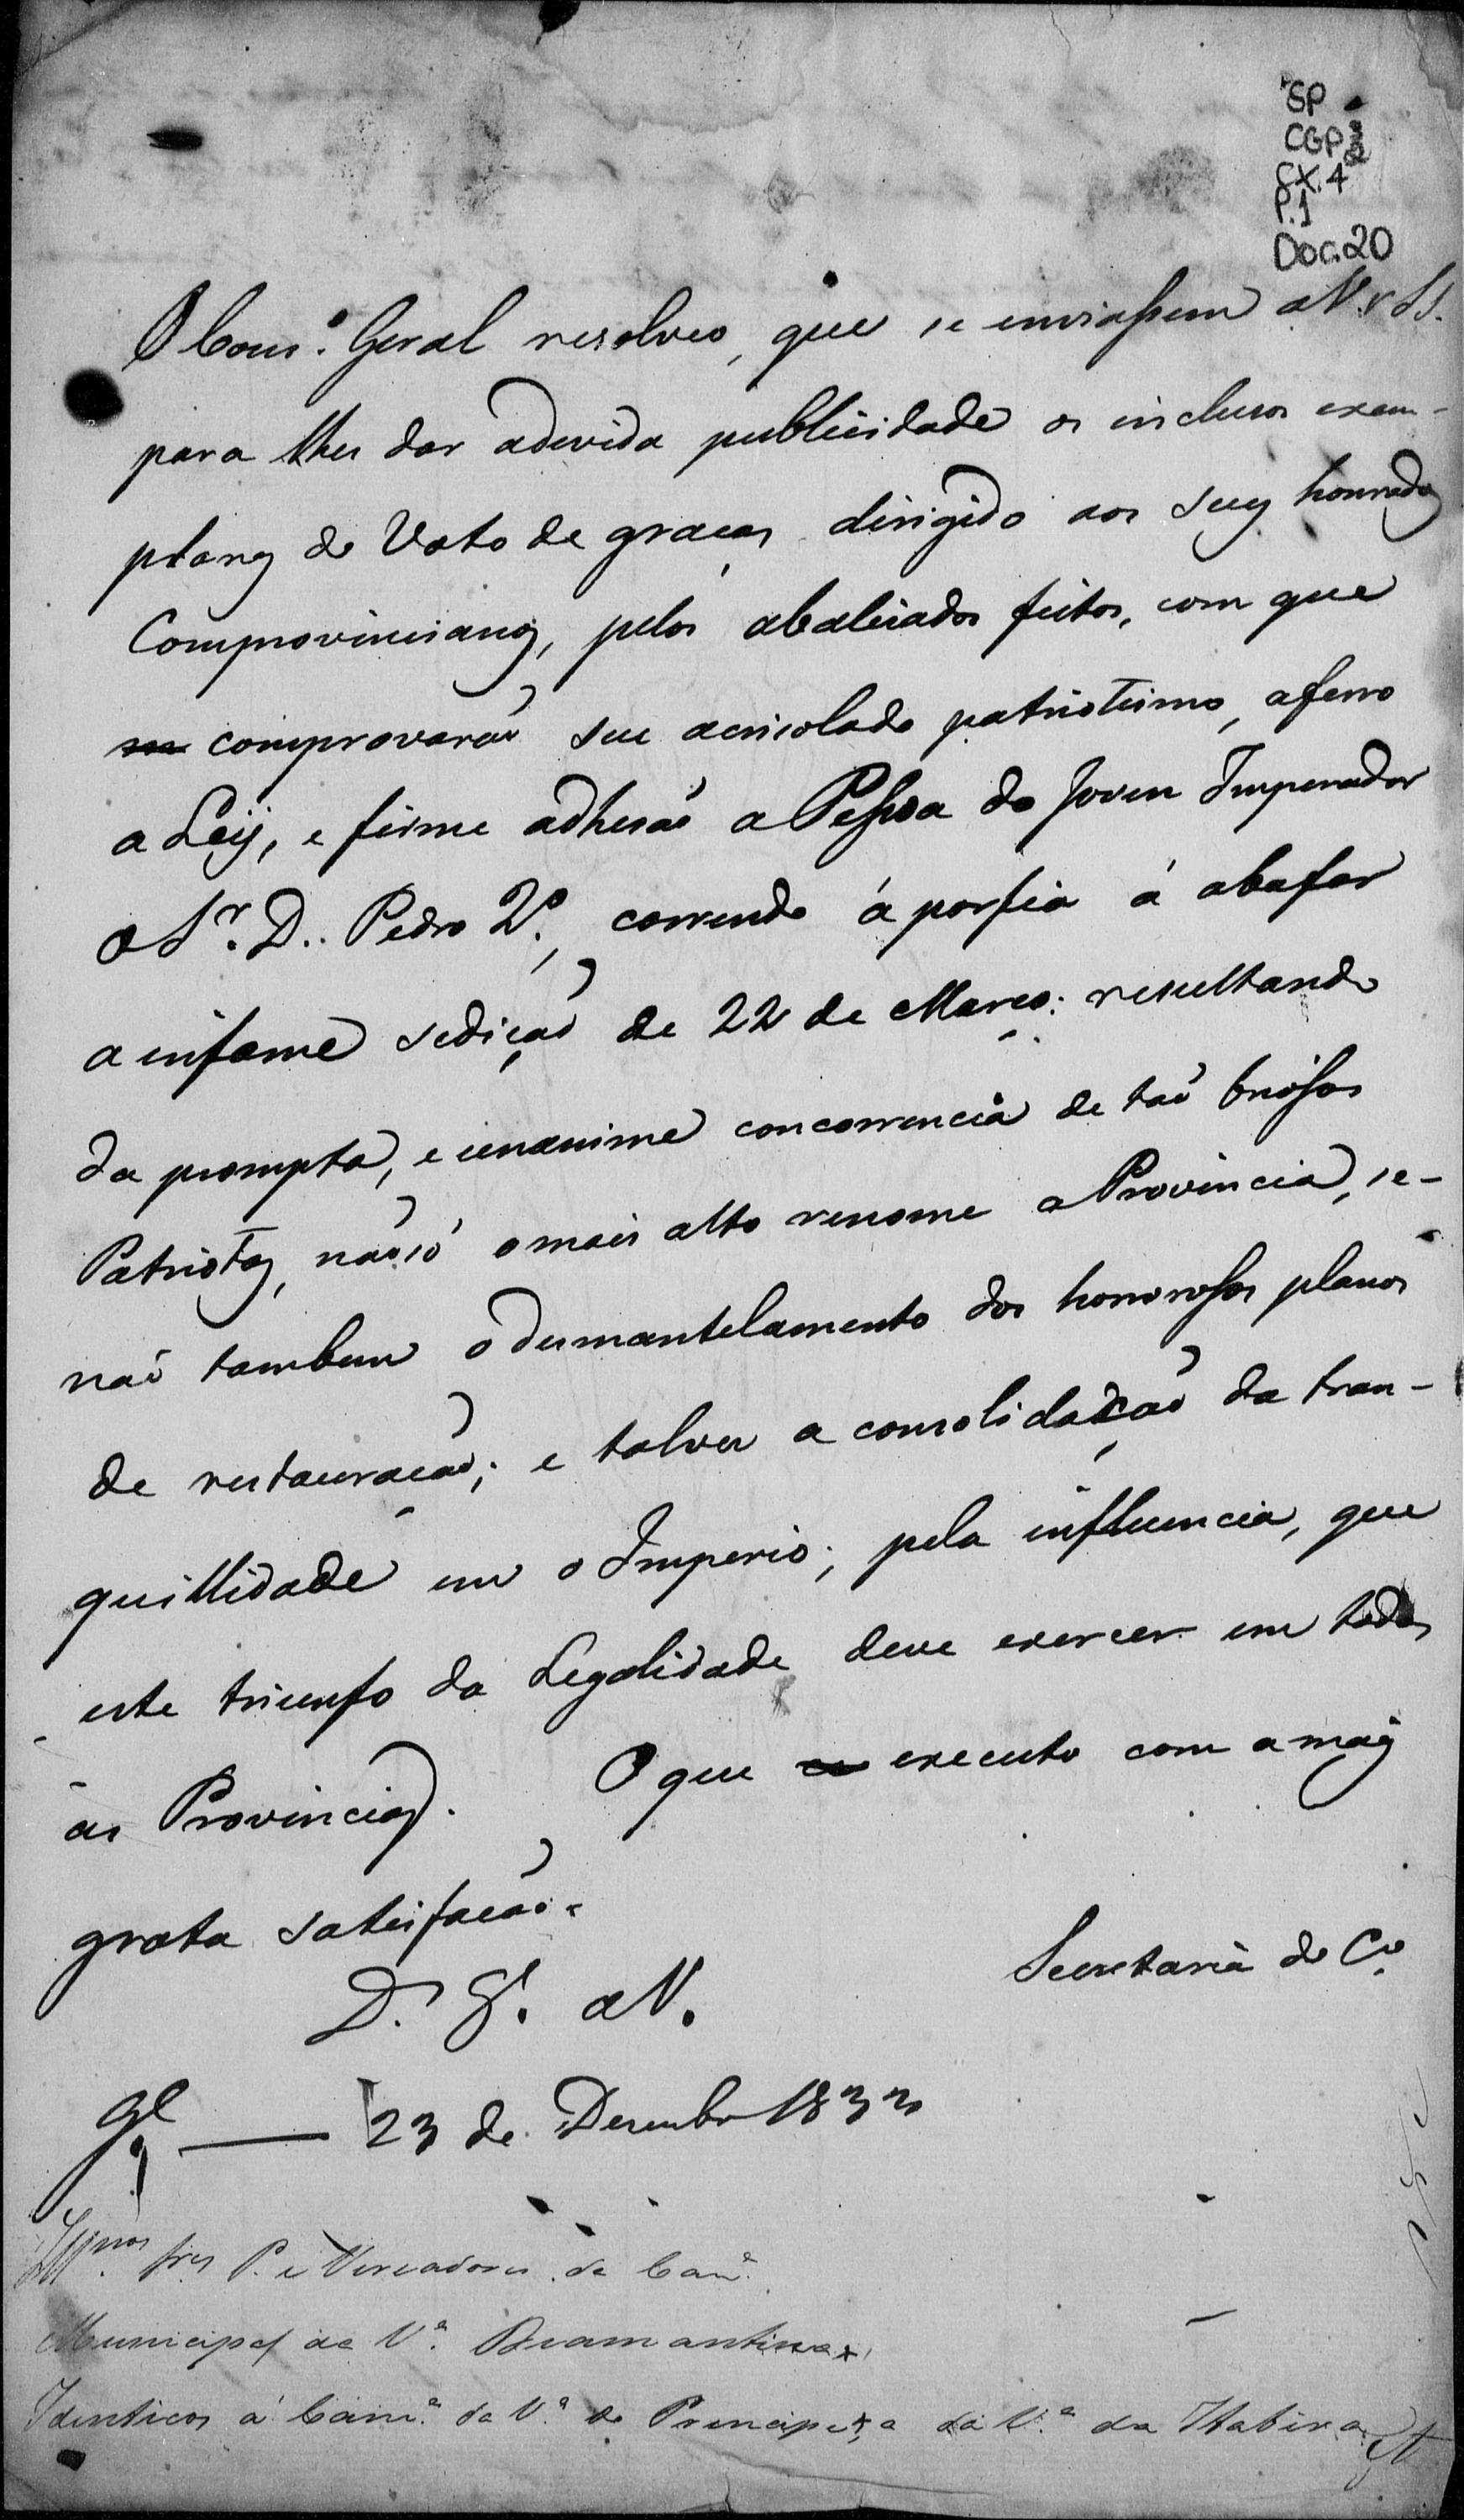 SP
CGP 3/2
CX. 4
P. 1
Doc. 20
O Cons.º Geral resolveo, que se enviassem a V. SS.
para lhes dar a devida publicidade os inclusos exem-
plares do Voto de graças dirigido aos seus honrados
Comprovincianos, pelos abalisados feitos, com que
comprovarão seu acrisolado patriotismo, aferro
a Leis, e firme adhesão a Pessoa do Joven Imperador
o Sr. D. Pedro 2.º, correndo á porfia á abafar
a infame sedição de 22 de Março: resultando
da prompta, e unanime concorrencia de tão briosos
Patriotas, não só o mais alto renome a Provincia, se-
não tambem o desmantelamento dos horrorosos planos
de restauração; e talves a consolidação da tran-
quillidade em o Imperio; pela influencia, que
este triunfo da Legalidade deve exercer em todas
as Provincias. O que executo com a mais
grata satisfação.
D. G. a V. Secretaria do C.º
G.el — 23 de Dezembro 1833
Ill.mos Sres P. e Vereadores da Cam.ª
Municipal da V.ª Diamantina
Identicos á Cam.ª da V.ª do Principe, e a da V.ª da Itabira